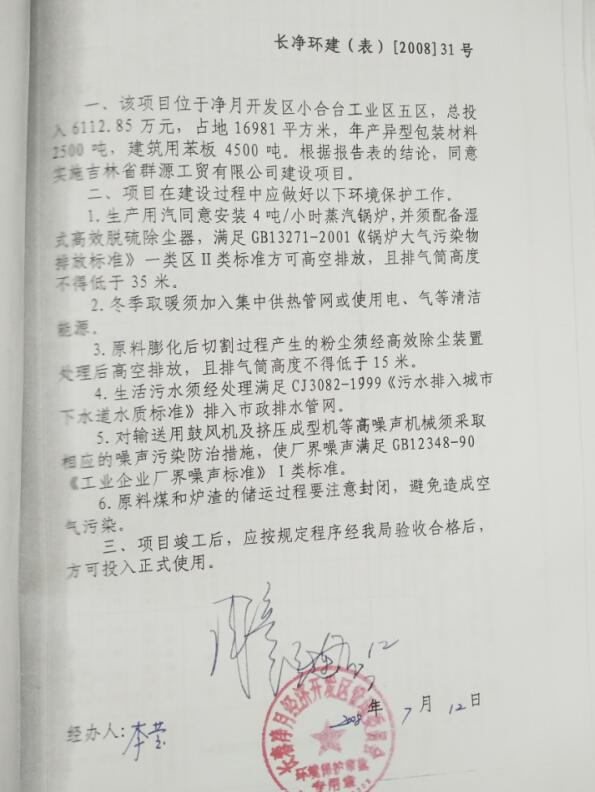 长净环建（表）[2008]31号
一、该项目位于净月开发区小合台工业区五区，总投
入6112.85万元，占地16981平方米，年产异型包装材料
2500吨，建筑用苯板4500吨。根据报告表的结论，同意
实施吉林省群源工贸有限公司建设项目。
二、项目在建设过程中应做好以下环境保护工作。
1.生产用汽同意安装4吨/小时蒸汽锅炉，并须配备湿
式高效脱硫除尘器，满足GB13271-2001《锅炉大气污染物
排放标准》一类区Ⅱ类标准方可高空排放，且排气筒高度
不得低于35米。
2.冬季取暖须加入集中供热管网或使用电、气等清洁
能源。
3.原料膨化后切割过程产生的粉尘须经高效除尘装置
处理后高空排放，且排气筒高度不得低于15米。
4.生活污水须经处理满足CJ3082-1999《污水排入城市
下水道水质标准》排入市政排水管网。
5.对输送用鼓风机及挤压成型机等高噪声机械须采取
相应的噪声污染防治措施，使厂界噪声满足GB12348-90
《工业企业厂界噪声标准》Ⅰ类标准。
6.原料煤和炉渣的储运过程要注意封闭，避免造成空
气污染。
三、项目竣工后，应按规定程序经我局验收合格后，
方可投入正式使用。
12
2008年7月12日
经办人：李莹
长春净月经济开发区管理委员会
环境保护审批
专用章